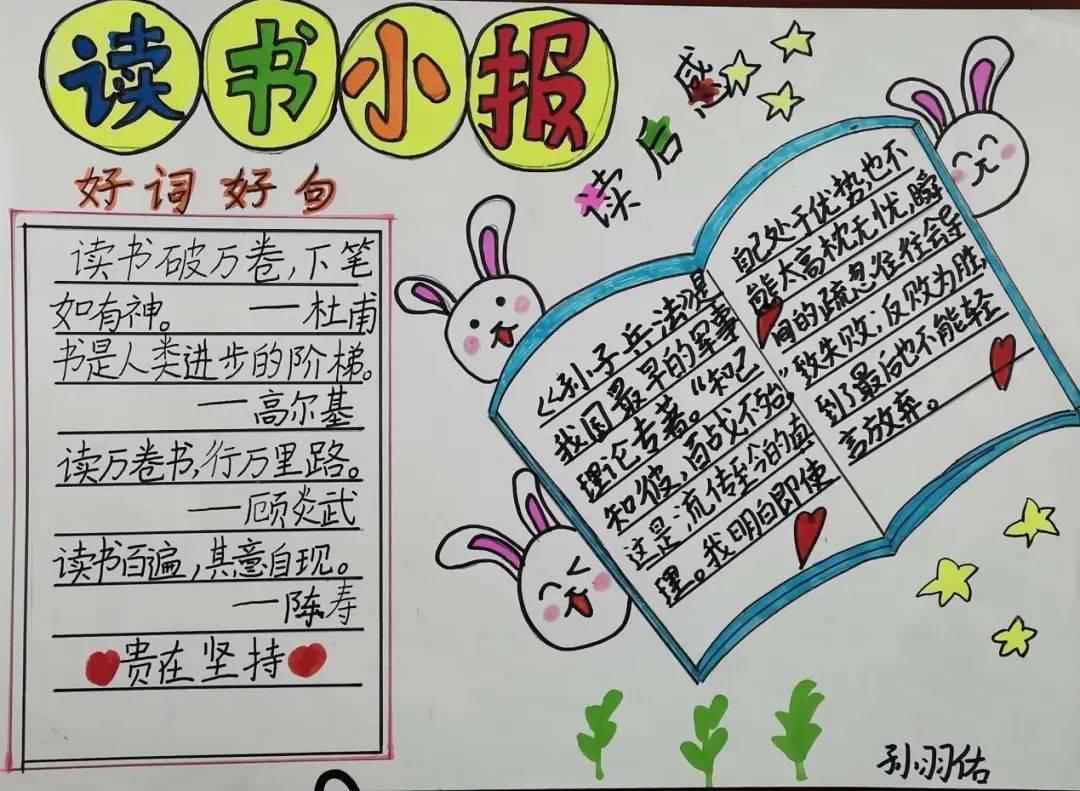 读书小报
好词好句
读书破万卷,下笔
如有神。 —杜甫
书是人类进步的阶梯。
—高尔基
读万卷书,行万里路。
—顾炎武
读书百遍,其意自现。
—陈寿
贵在坚持
读后感
《孙子兵法》是
我国最早的军事
理论专著。“知己
知彼,百战不殆”
这是流传至今的真
理。我明白即使
自己处于优势,也不
能太高枕无忧,瞬
间的疏忽往往会导
致失败;反败为胜,
到了最后也不能轻
言放弃。
孙羽佑